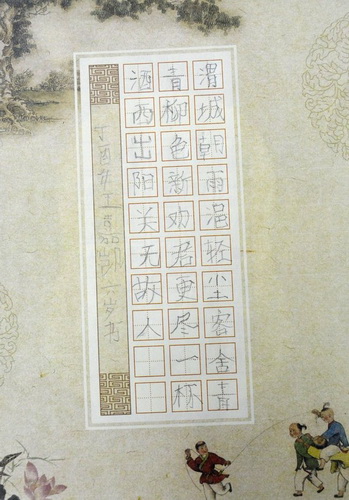 渭城朝雨浥轻尘客舍青
青柳色新劝君更尽一杯
酒西出阳关无故人
丁酉年王嘉六岁书